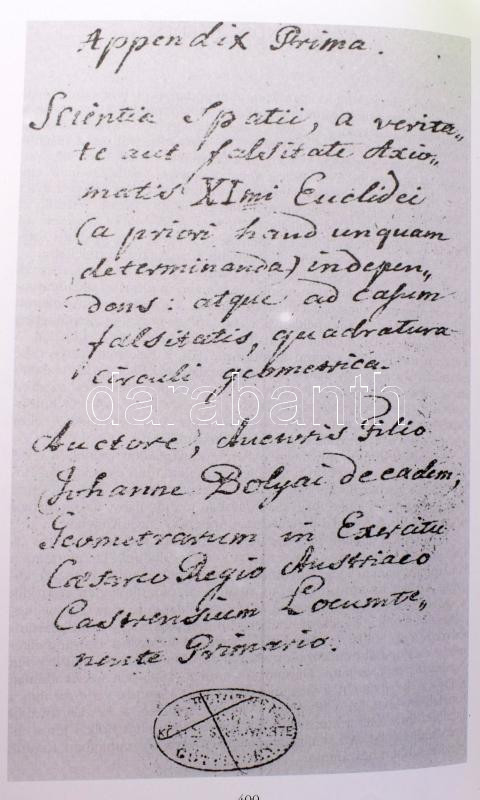 Appendix Prima.
Scientia Spatii, a verita„
te aut falsitate Axio„
matis XImi Euclidei
(a priori haud unquam
determinanda) indepen„
dens: atque ad casum
falsitatis, quadratura
circuli geometrica.
darabanth
Auctore, Auctoris Filio
Johanne Bolyai de eadem,
Geometrarum in Exercitu
Cæsareo Regio Austriaco
Castrensium Locumte„
nente Primario.